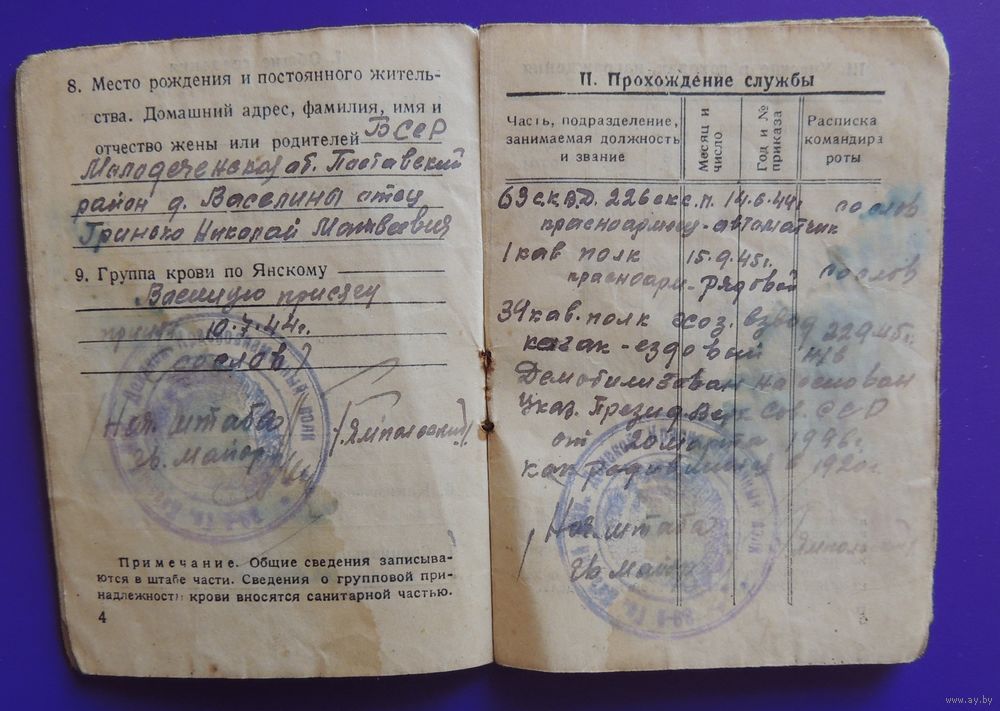 8. Место рождения и постоянного житель-
ства. Домашний адрес, фамилия, имя и
отчество жены или родителей БССР
Молодеченской об. Поставский
район д. Васелины отец
Гринько Николай Матвеевич
9. Группа крови по Янскому
Военную присягу
принял 10.7.44г.
(со слов)
Нач. штаба
гв. майор
(Ямпольский)
Примечание. Общие сведения записыва-
ются в штабе части. Сведения о групповой при-
надлежности крови вносятся санитарной частью.
4
II. Прохождение службы
Часть, подразделение,
занимаемая должность
и звание
Месяц и
число
Год и №
приказа
Расписка
командира
роты
63 скд. 226 зкс.п. 14.6.44г. со слов
красноармеец-автоматчик
1 кав полк 15.9.45г. со слов
красноарм-рядовой
34 кав. полк хоз. взвод
казак-ездовой
Демобилизован на основан
Указ. Презид. Верх Сов. СССР
от 20 марта 1946г.
как родившийся в 1920г.
Нач. штаба
гв. майор
www.ay.by